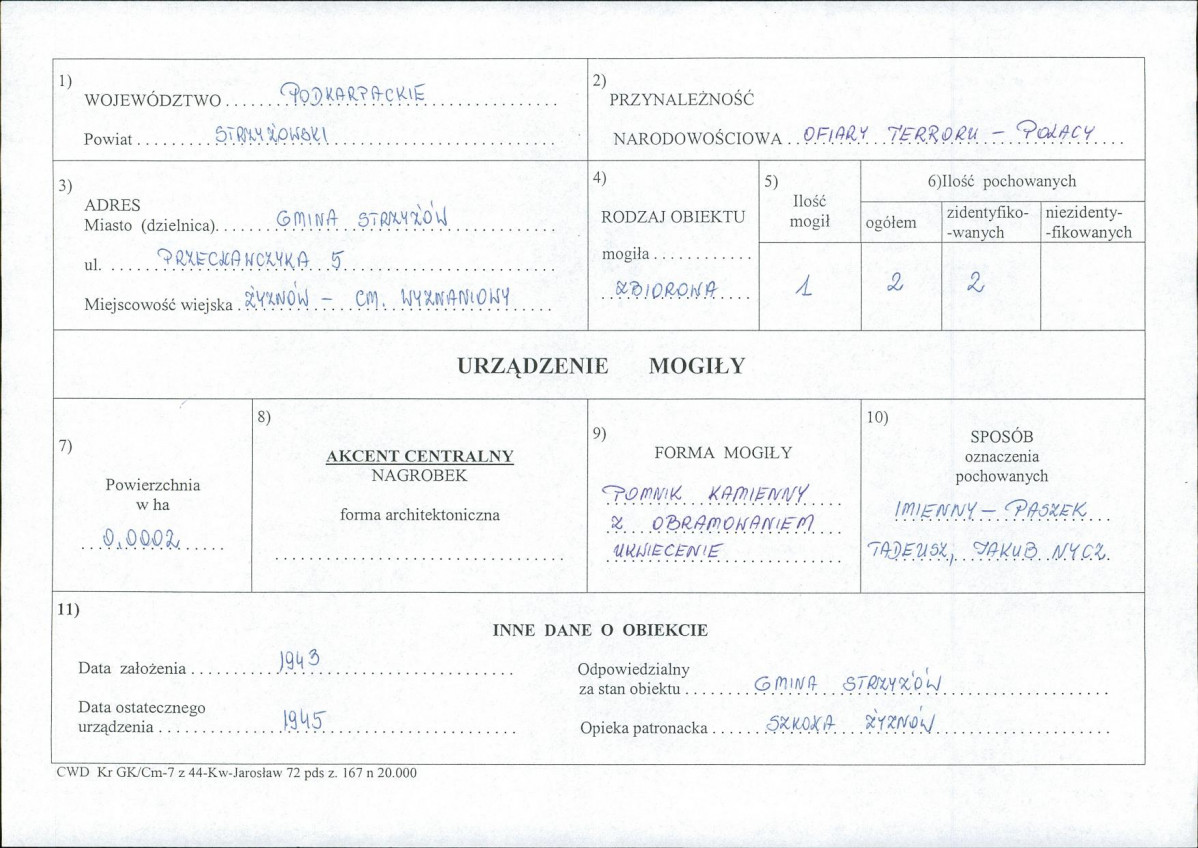 1)
WOJEWÓDZTWO PODKARPACKIE
Powiat STRZYŻOWSKI
2)
PRZYNALEŻNOŚĆ
NARODOWOŚCIOWA OFIARY TERRORU – POLACY
3)
ADRES
Miasto (dzielnica). GMINA STRZYŻÓW
ul. PRZECŁAWCZYKA 5
Miejscowość wiejska ŻYZNÓW – CM. WYZNANIOWY
4)
RODZAJ OBIEKTU
mogiła
ZBIOROWA
5)
Ilość
mogił
1
6)Ilość pochowanych
ogółem
2
zidentyfiko-
-wanych
2
niezidenty-
-fikowanych
URZĄDZENIE MOGIŁY
7)
Powierzchnia
w ha
0,0002
8)
AKCENT CENTRALNY
NAGROBEK
forma architektoniczna
9)
FORMA MOGIŁY
POMNIK KAMIENNY
Z OBRAMOWANIEM
UKWIECENIE
10)
SPOSÓB
oznaczenia
pochowanych
IMIENNY – PASZEK
TADEUSZ, JAKUB NYCZ
11)
INNE DANE O OBIEKCIE
Data założenia 1943
Data ostatecznego
urządzenia 1945
Odpowiedzialny
za stan obiektu GMINA STRZYŻÓW
Opieka patronacka SZKOŁA ŻYZNÓW
CWD Kr GK/Cm-7 z 44-Kw-Jarosław 72 pds z. 167 n 20.000